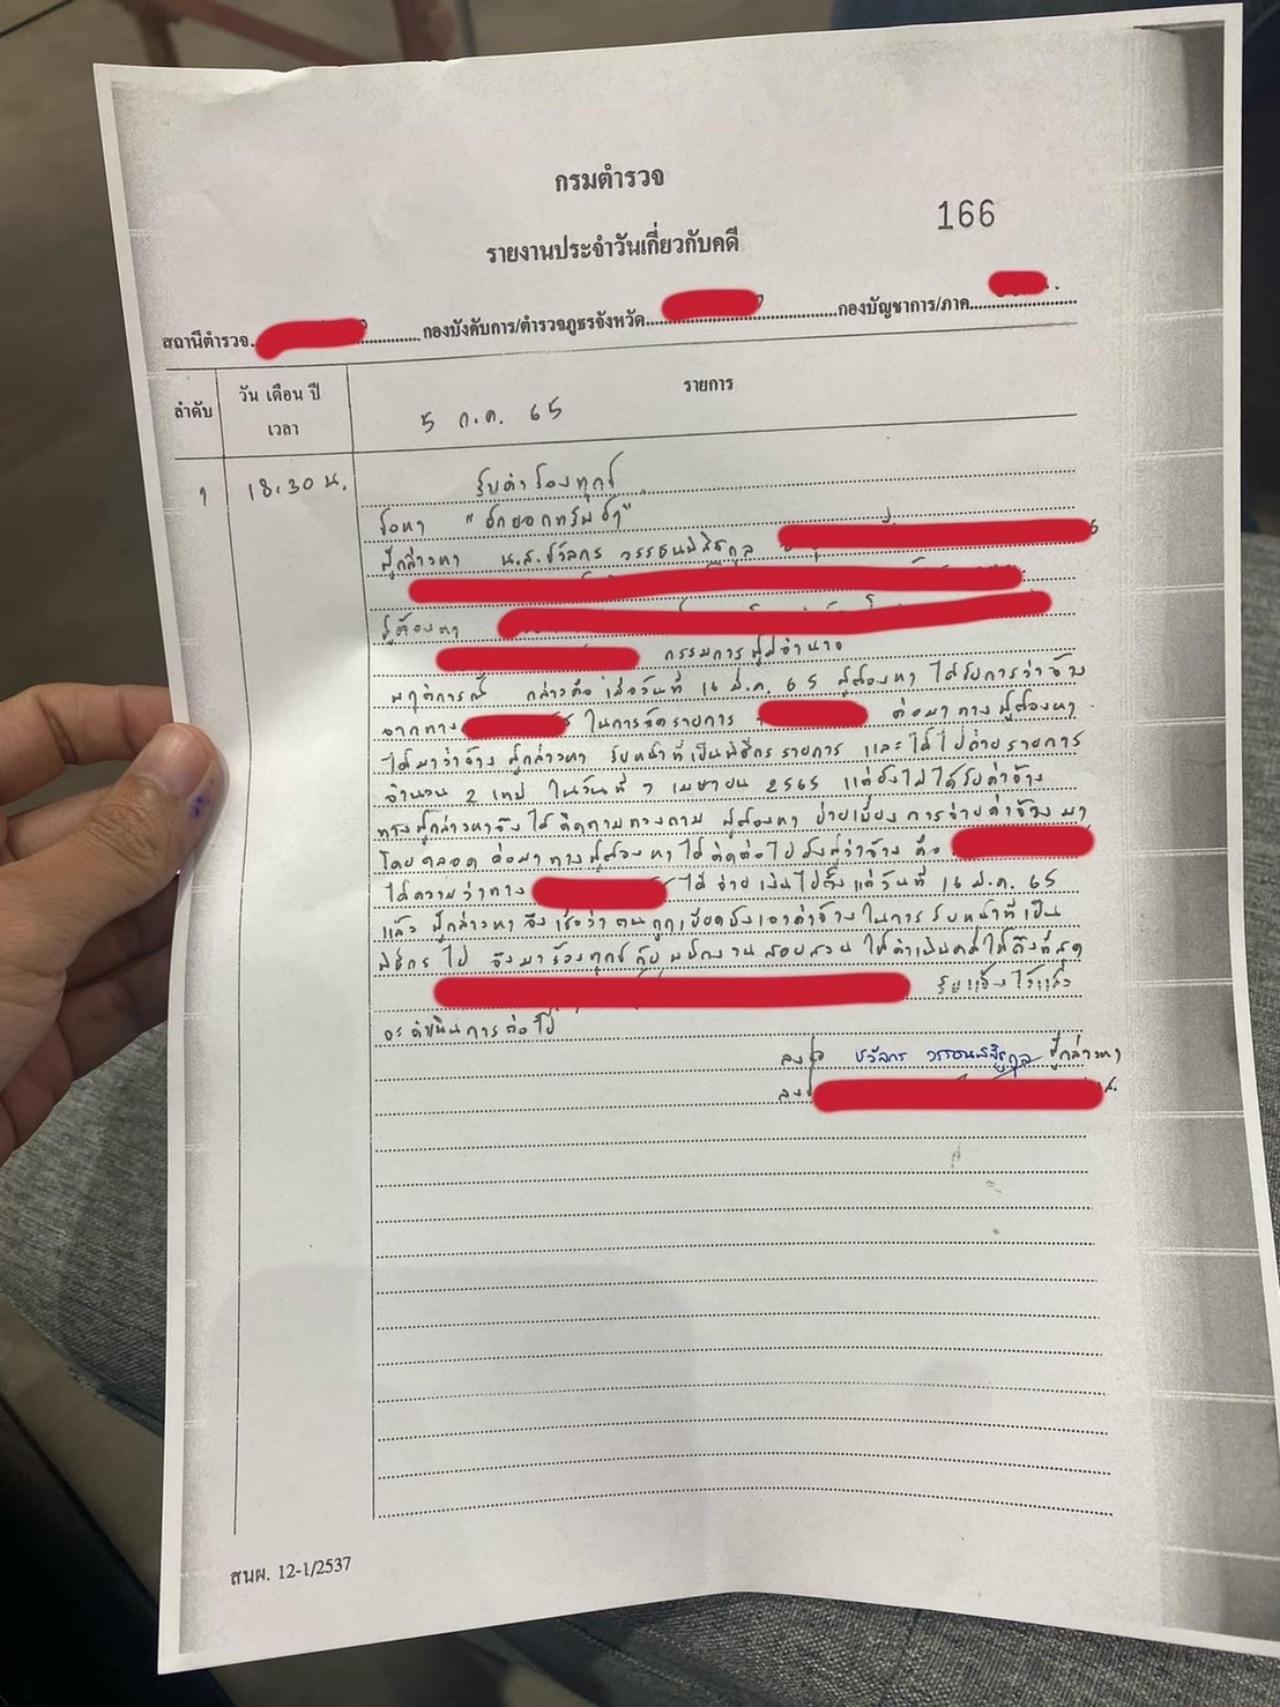 กรมตำรวจ
166
รายงานประจำวันเกี่ยวกับคดี
สถานีตำรวจ กองบังคับการ/ตำรวจภูธรจังหวัด กองบัญชาการ/ภาค
ลำดับ วัน เดือน ปี เวลา รายการ
5 ก.ค. 65
1 18.30 น. รับคำร้องทุกข์
ข้อหา "ยักยอกทรัพย์ฯ"
ผู้กล่าวหา น.ส.ชวัลกร วรรธนพิสิฐกุล
ผู้ต้องหา
กรรมการผู้มีอำนาจ
พฤติการณ์ กล่าวคือ เมื่อวันที่ 16 มี.ค. 65 ผู้ต้องหา ได้รับการว่าจ้าง
จากทาง ในการจัดรายการ ต่อมาทางผู้ต้องหา
ได้มาว่าจ้าง ผู้กล่าวหา รับหน้าที่เป็นพิธีกรรายการ และได้ไปถ่ายรายการ
จำนวน 2 เทป ในวันที่ 7 เมษายน 2565 แต่ยังไม่ได้รับค่าจ้าง
ทางผู้กล่าวหาจึงได้ติดตามทวงถาม ผู้ต้องหา บ่ายเบี่ยงการจ่ายค่าจ้างมา
โดยตลอด ต่อมาทางผู้ต้องหาได้ติดต่อไปยังผู้ว่าจ้าง คือ
ได้ความว่าทาง ได้จ่ายเงินไปตั้งแต่วันที่ 16 มี.ค. 65
แล้ว ผู้กล่าวหาจึงเชื่อว่าตนถูกเบียดบังเอาค่าจ้างในการรับหน้าที่เป็น
พิธีกรไป จึงมาร้องทุกข์กับพนักงานสอบสวน ให้ดำเนินคดีให้ถึงที่สุด
รับแจ้งไว้แล้ว
จะดำเนินการต่อไป
ลงชื่อ ชวัลกร วรรธนพิสิฐกุล ผู้กล่าวหา
ลงชื่อ
สนผ. 12-1/2537